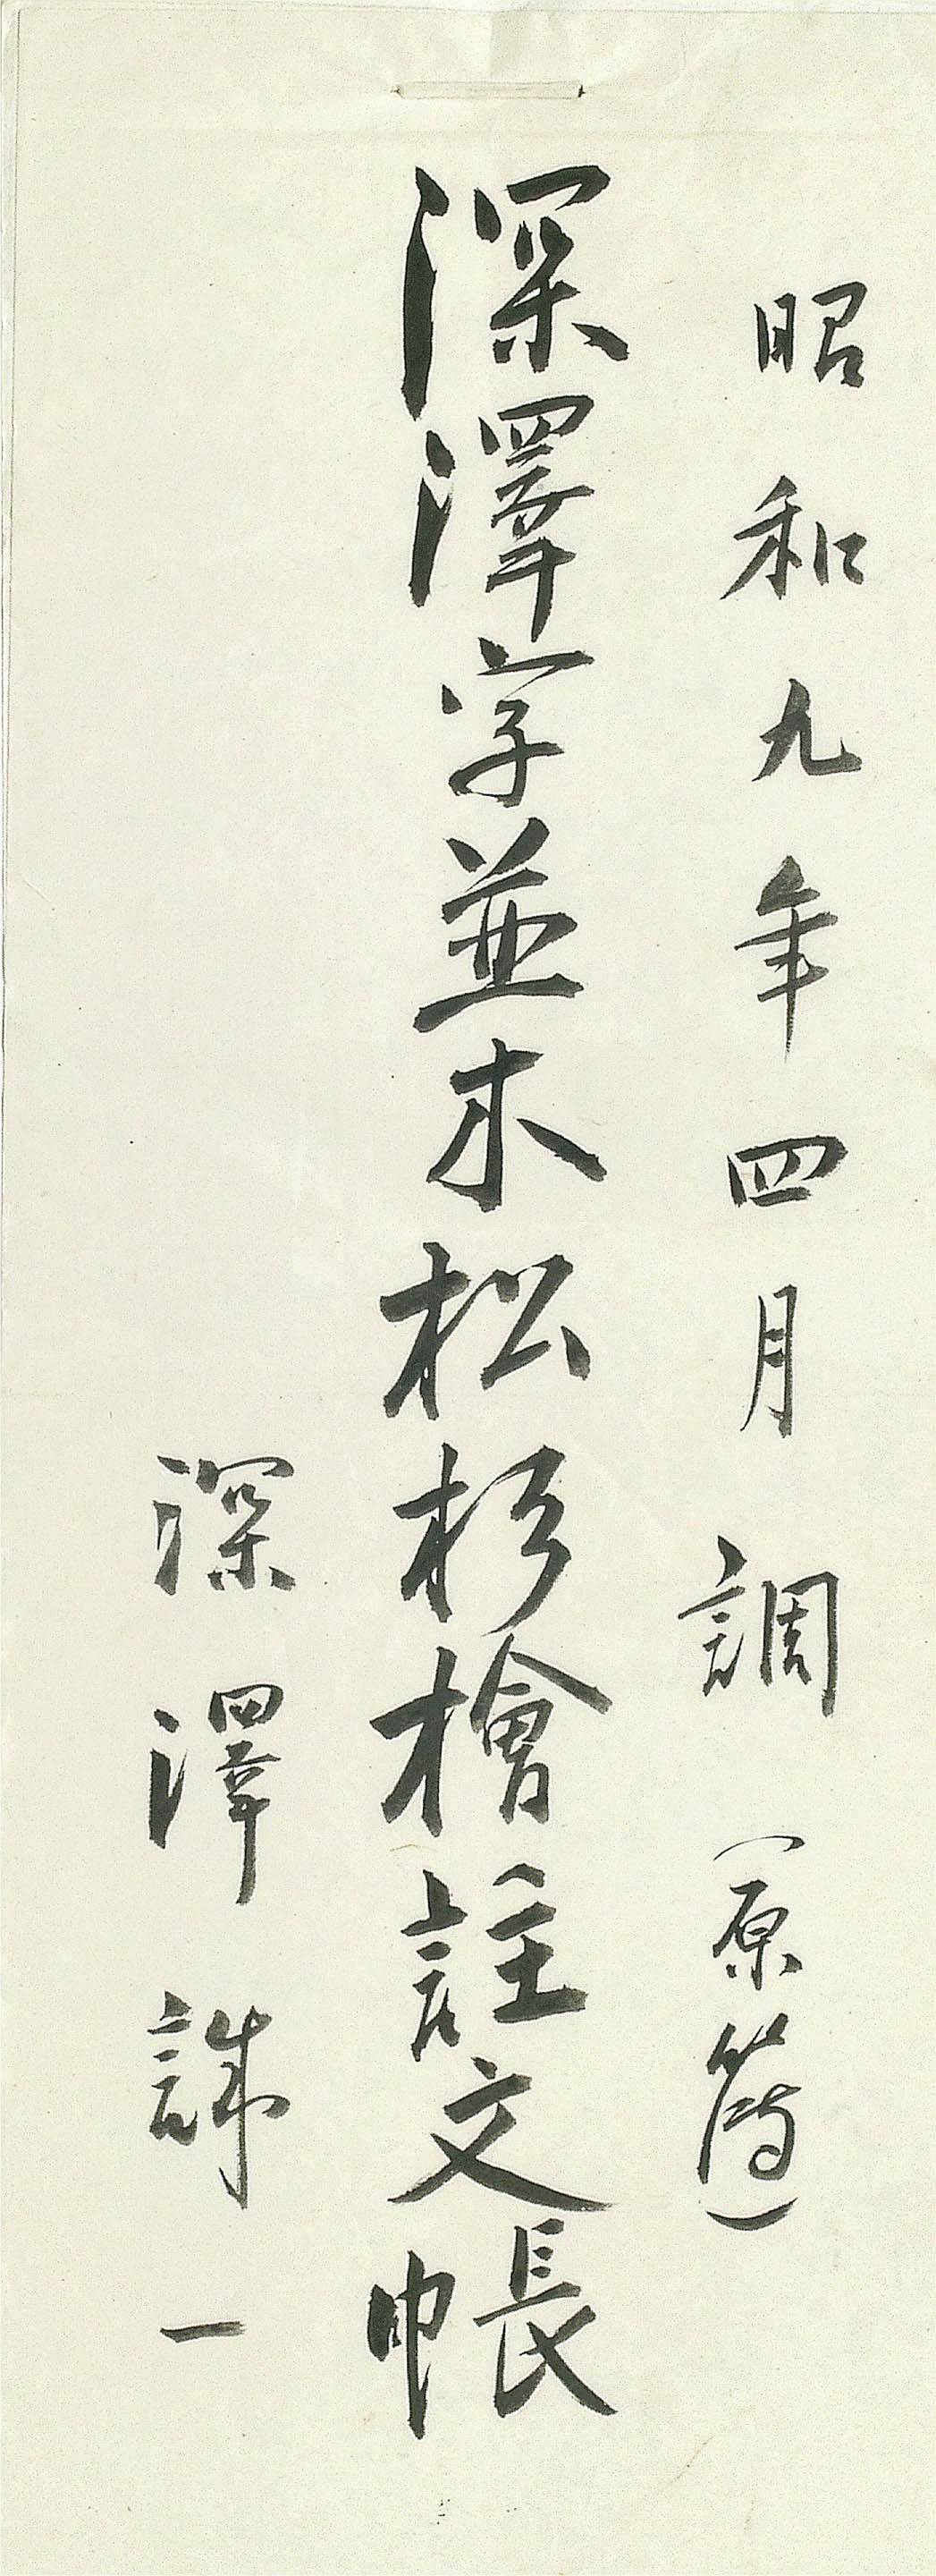 昭和九年四月調（原簿）
深澤字並木松杉檜註文帳
深澤誠一